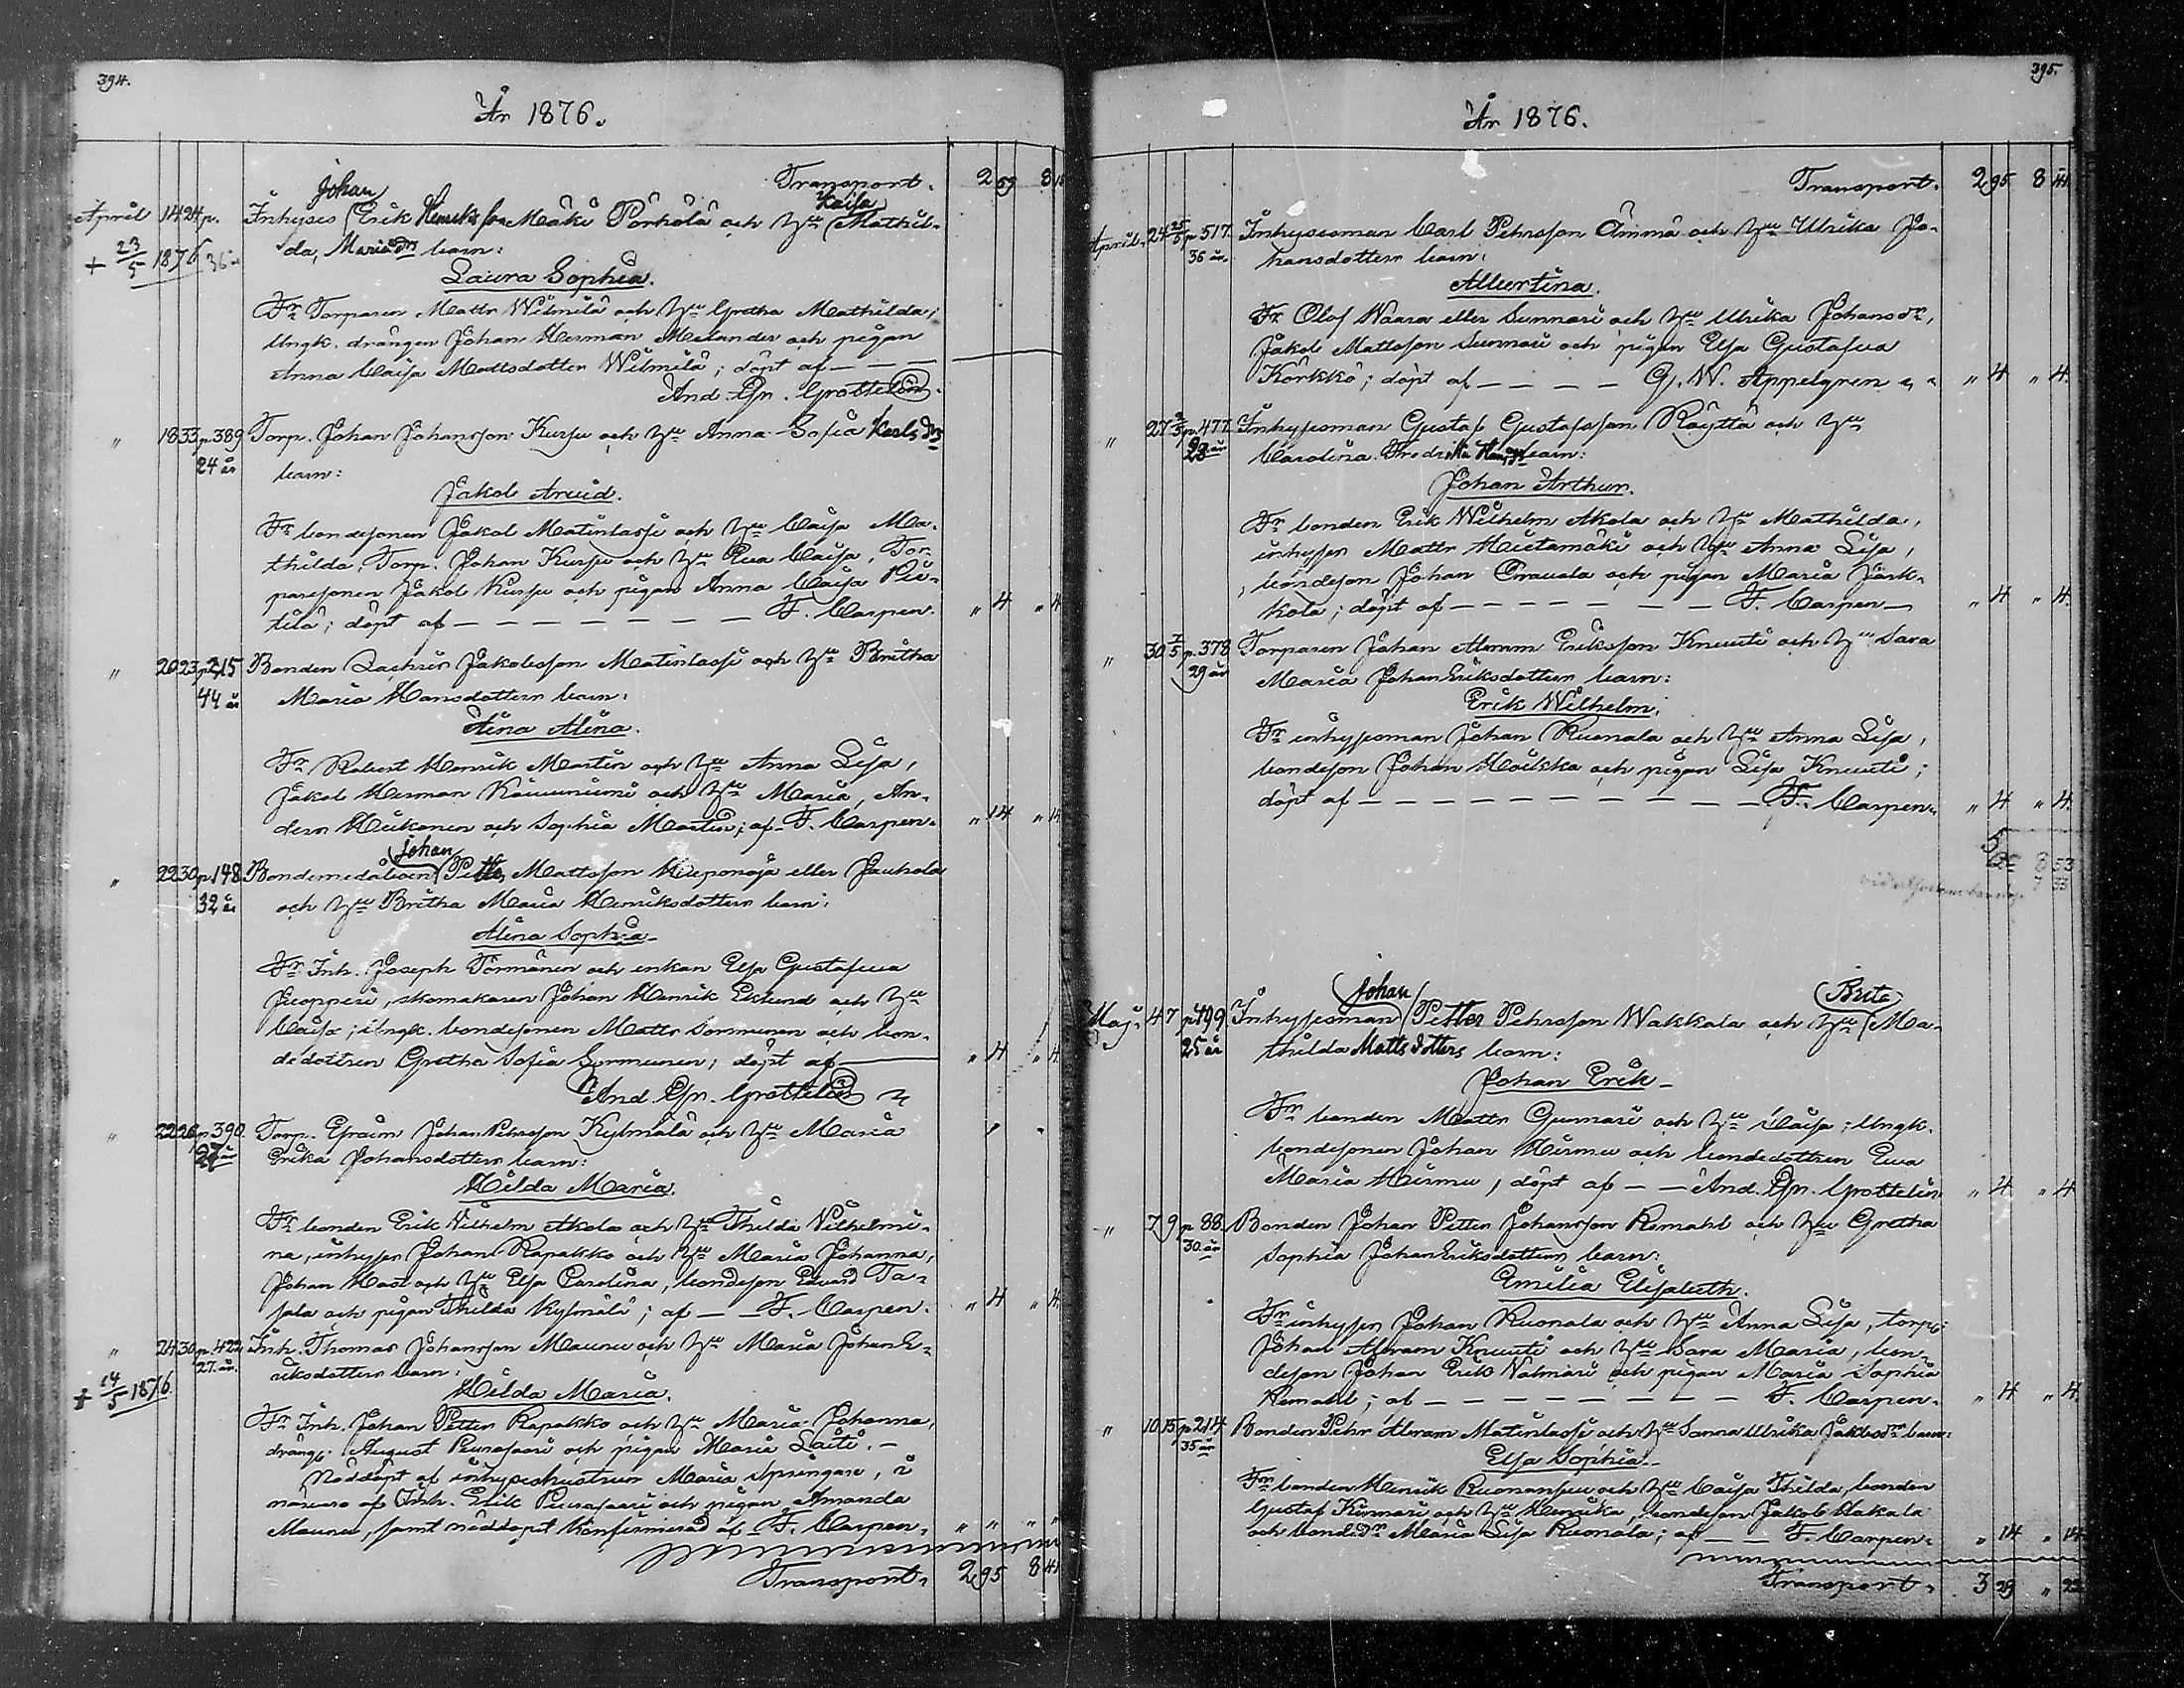 394.
År 1876.
Transport. 2 59 8
Johan Kaisa
April 14 24 p. Inhyses Erik Henriksson Mäki Pörhölä och Hu Mathil-
+ 23/5 1876 da, Mariadr barn:
Laura Sophia.
Fr Torparen Matts Wilmilä och Hu Gretha Mathilda;
Ungk. drängen Johan Herman Melander och pigan
Anna Caisa Mattsdotter Wilmilä; döpt af — —
And. Gr.
" 18 33 p 389 Torp. Johan Johansson Kurju och Hu Anna Sofia Karls dr
24 år barn:
Jakob Arvid.
Fr bondesonen Jakob Matinlassi och Hu Caisa Ma-
thilda, Torp. Johan Kurju och Hu Eva Caisa, Tor-
paresonen Jakob Kurju och pigan Anna Caisa
döpt af — — — — — — — F. Carpen. " 4 " 4
" 20 23 p 215 Bonden Zachris Jakobsson Matinlassi och Hu Britha
44 år Maria Hansdotters barn:
Aina Alina.
Fr Robert Henrik Martin och Hu Anna Lisa,
Jakob Herman och Hu Maria, An-
ders Heikonen och Sophia Martin; af F. Carpen. " 14 " 14
Johan
" 22 30 p 148 Bondemedåboen Petter Mattsson Haponoja eller Jauhola
32 år och Hu Britha Maria Henriksdotters barn:
Alina Sophia
Fr Inh. Joseph Törmänen och enkan Elsa Gustafva
Juopperi, skomakaren Johan Henrik Eklund och Hu
Caisa; Ungk. bondesonen Matts Sormunen och bon-
dedottren Gretha Sofia Sormunen; döpt af " 4 " 4
And. Gr.
" 22 26 p. 390. Torp. Efraim Johan Pehrsson Kylmälä och Hu Maria
27 år Erika Johansdotters barn:
Hilda Maria.
Fr bonden Erik Vilhelm Akola och Hu Thilda Vilhelmi-
na, inhyses Johan Rapakko och Hu Maria Johanna,
Johan Hast och Hu Elsa Carolina, bondeson Edvard Ta-
pala och pigan Thilda Kylmälä; af — — F. Carpen. " 4 " 4
" 24 30 p. 422 Inh. Thomas Johansson Maunu och Hu Maria Johan E-
27. år. riksdotters barn:
+ 14/5 1876. Hilda Maria.
Fr Inh. Johan Petter Rapakko och Hu Maria Johanna,
dräng. August Peurasaari och pigan Maria Laiti. —
Nöddöpt af inhyseshustrun Maria Springare, i
närvaro af Inh. Erik Peurasaari och pigan Amanda
Maunu, samt nöddopet konfirmerad af F. Carpen. " " " "
Transport. 2 95 8 41
395.
År 1876.
Transport. 2 95 8 41
April. 24 25/5 p 517. Inhysesman Carl Pehrsson Ämmä och Hu Ulrika Jo-
36 år. hansdotters barn:
Albertina.
Fr Olof Waara eller Sunnari och Hu Ulrika Johansdr,
Jakob Mattsson Sunnari och pigan Elsa Gustafva
Körkkö; döpt af — — — — G. W. Appelgren " 4 " 4.
" 27 p. 477. Inhysesman Gustaf Gustafsson Räyttä och Hu
28 år Carolina Fredrika barn:
Johan Arthur.
Fr bonden Erik Wilhelm Akola och Hu Mathilda,
inhyses Matts Hietamäki och Hu Anna Lisa,
bondeson Johan Oravala och pigan Maria Jänk-
kälä; döpt af — — — — — — F. Carpen — " 4 " 4.
" 30 7/5 p. 378 Torparen Johan Abram Eriksson Knuuti och Hu Sara
29 år Maria Johan Eriksdotters barn:
Erik Wilhelm.
Fr inhysesman Johan Ruonala och Hu Anna Lisa,
bondeson Johan Hoikka och pigan Lisa Knuuti;
döpt af — — — — — — — — — F. Carpen. " 4 " 4.
8 53
7 33
Johan Brita
Maj. 4 7 p 499 Inhysesman Petter Pehrsson Wakkala och Hu Ma-
25 år thilda Mattsdotters barn:
Johan Erik —
Fr bonden Matts Gunnari och Hu Caisa; Ungk.
bondesonen Johan Hirmu och bondedottren Eva
Maria Hirmu, döpt af — — And. Gr. " 4 " 4
" 7 9 p 88. Bonden Johan Petter Johansson Remahl och Hu Gretha
30. år Sophia Johan Eriksdotters barn:
Emilia Elisabeth.
Fr inhyses Johan Ruonala och Hu Anna Lisa, torp.
Johan Abram Knuuti och Hu Sara Maria, bon-
deson Johan Erik Valmari och pigan Maria Sophia
Remahl; af — — — — — — — F. Carpen. " 4 " 4.
" 10 15 p 214 Bonden Pehr Abram Matinlassi och Hu Sanna Ulrika Jakobsdr barn:
35 år Elsa Sophia. —
Fr bonden Henrik Ruonansuu och Hu Caisa Thilda, bonden
Gustaf Kinnari och Hu Henrika, bondeson Jakob Hakala
och bondedr Maria Lisa Ruonala; af — — F. Carpen. " 14 " 14
Transport. 3 29 " 22